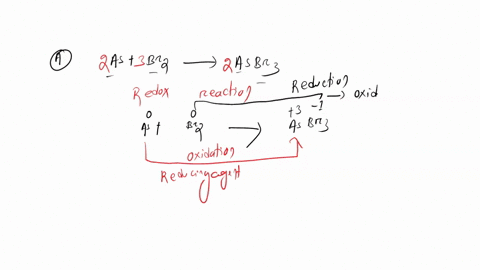 A 2As + 3Br2 → 2AsBr3
Redox reaction Reduction
→ oxid
0 0 +3 -1
As + Br2 → AsBr3
oxidation
Reducing agent